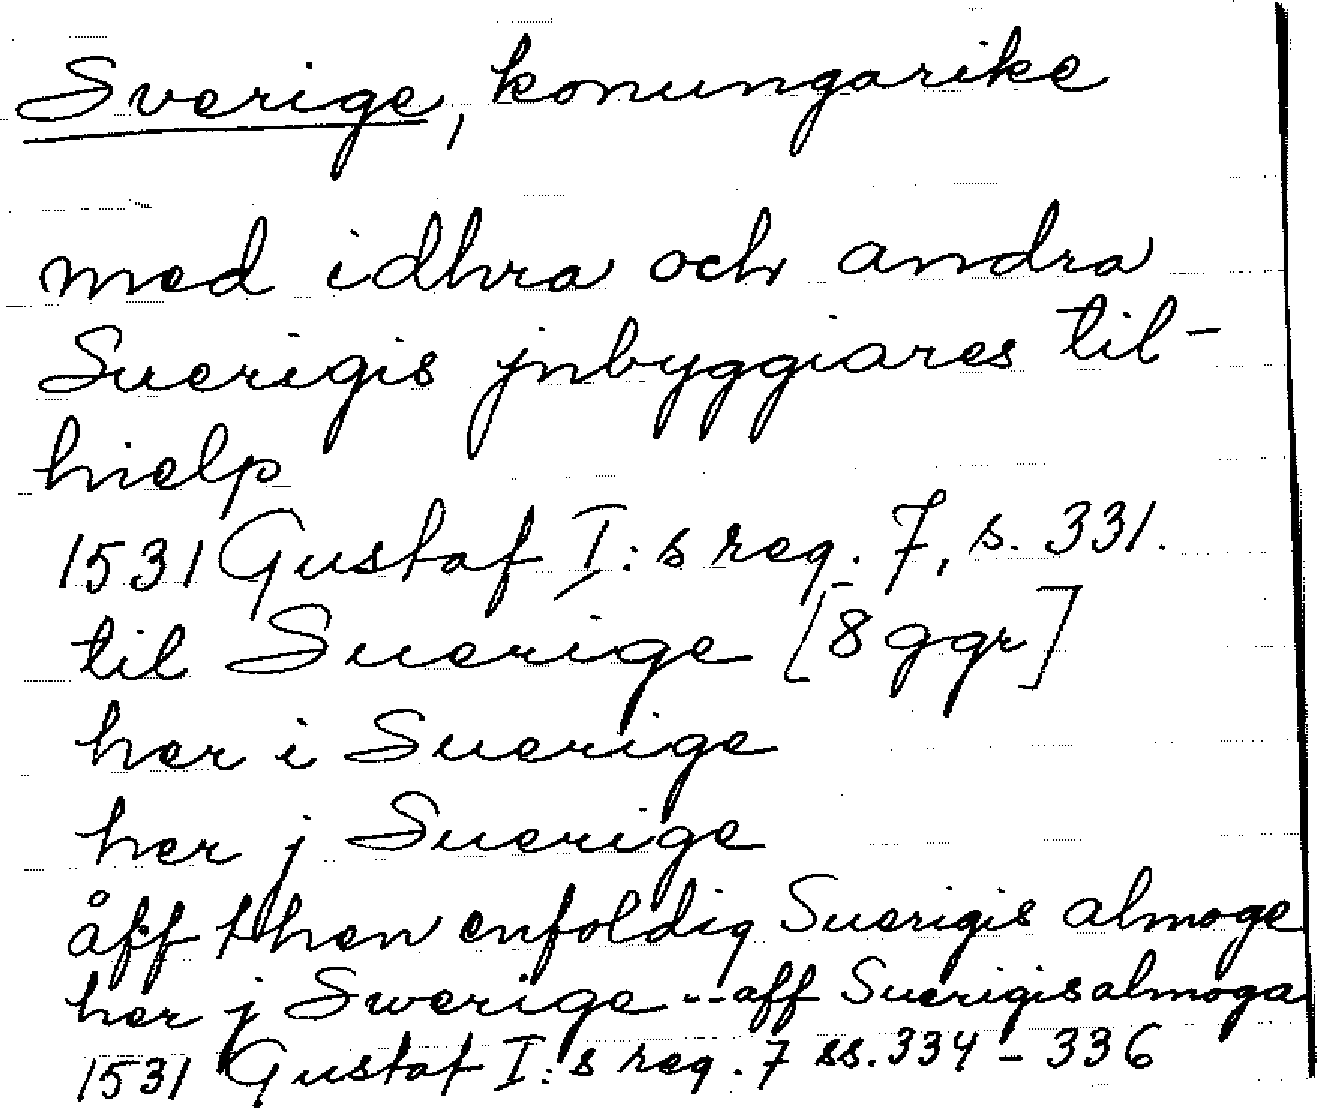 Sverige, konungarike
med idhra och andra
Suerigis jnbyggiares til-
hielp
1531 Gustaf I:s reg. 7, s. 331.
til Suerige [8 ggr]
her i Suerige
her j Suerige
åff then enfoldig Suerigis almoge
her j Swerige -- aff Suerigis almoga
1531 Gustaf I:s reg. 7 ss. 334-336